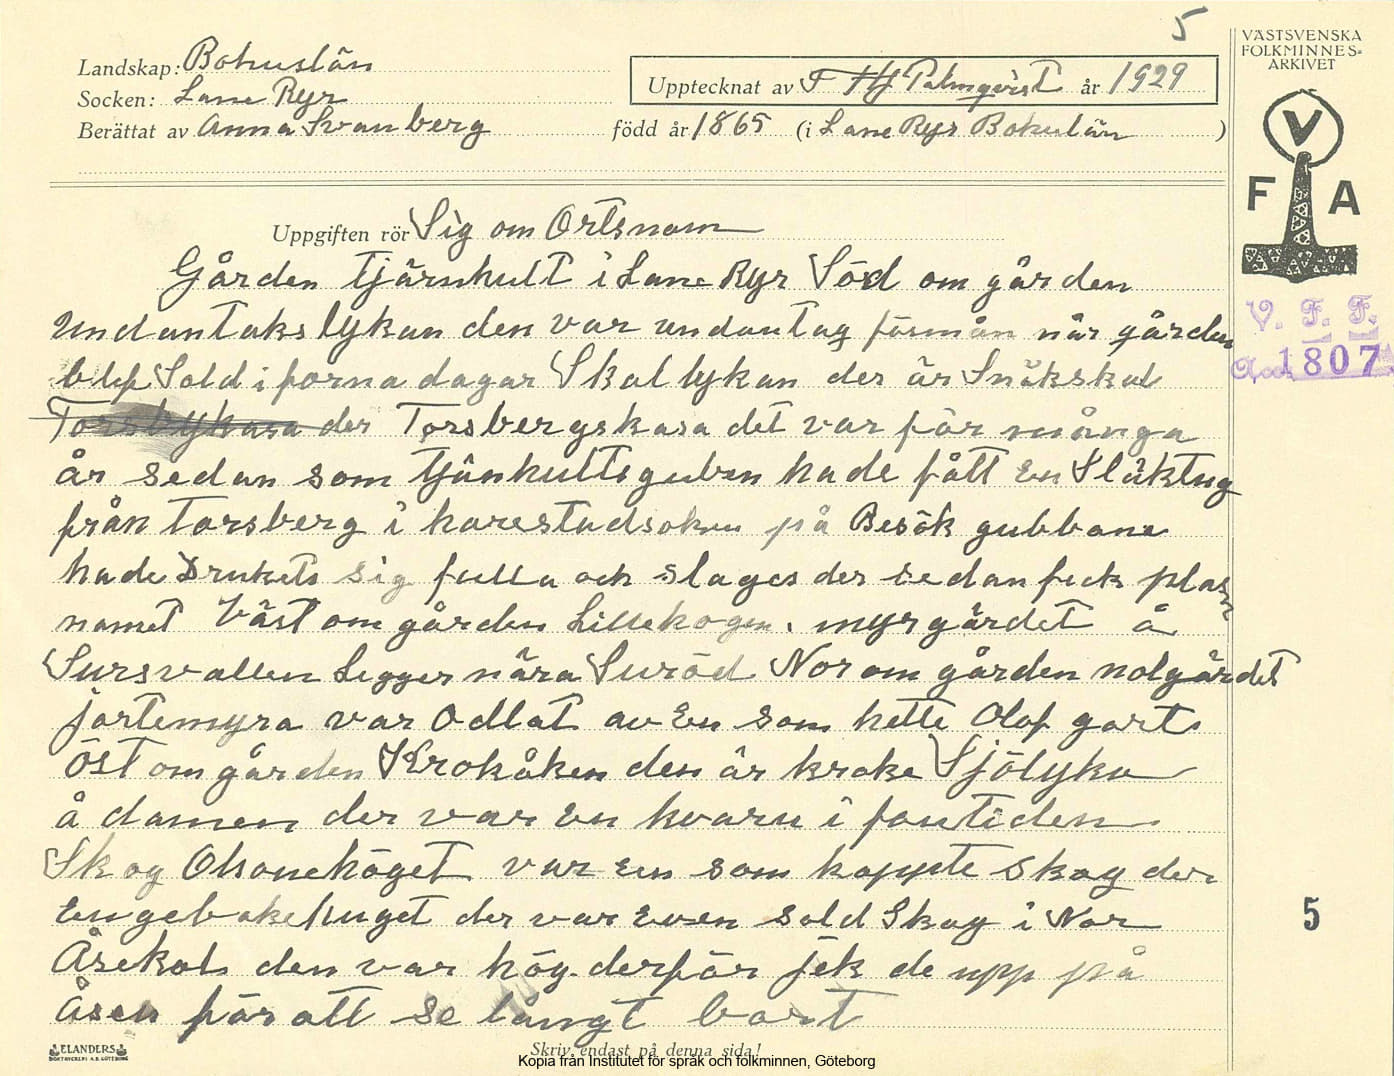 5
VÄSTSVENSKA
FOLKMINNES-
ARKIVET
Landskap: Bohuslän
Socken: Lane Ryr
Upptecknat av F Hj Palmqvist år 1929
Berättat av Anna Svanberg född år 1865 (i Lane Ryr Bohulän)
V
F A
Uppgiften rör Sig om Ortsnam
Gården tjärnkult i Lane Ryr Söd om gården
Undantakslykan den var undantag försmån när gården
blef Sold i forna dagar Skallykan der är Snäkskal
Torsbykasa der Torsbergskasa det var för många
år sedan som tjänkultsguben hade fått en Släktng
från Torsberg i harestadsoken på Besök gubbane
hade Drukets sig fulla och slages der sedan feck plasn
namet Väst om gården Lillekogen. myrgärdet å
Sursvallen Legger nära Suröd Nor om gården nolgärdet
jortemyra var Odlat av En som hette Olof gort
öst om gården Krokåken den är kroke Sjölyka
å damen der var En kvarn i fontiden
Skog Olsonehöget var En som hoppte Skog der
Engebakehuget der var Even sold Skog i Nor
Åsekols den var hög. derför jek de upp på
åsen för att se långt bort
V. F. F.
Acc. 1807
5
ELANDERS
BOKTRYCKERI A.B. GÖTEBORG
Skriv endast på denna sida!
Kopia från Institutet för språk och folkminnen, Göteborg